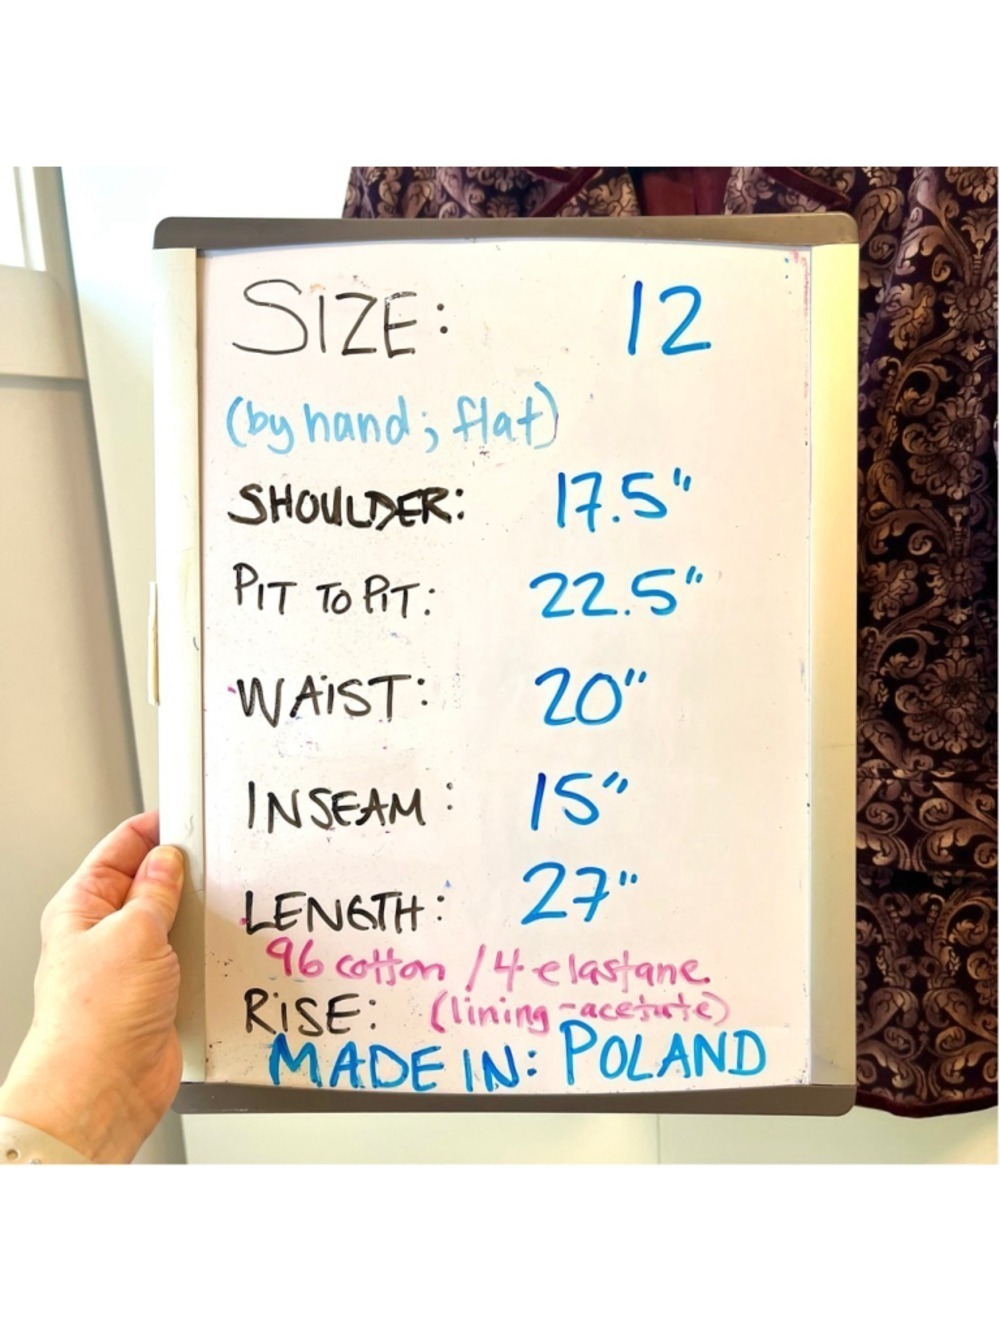 SIZE: 12
(by hand; flat)
SHOULDER: 17.5"
PIT TO PIT: 22.5"
WAIST: 20"
INSEAM: 15"
LENGTH: 27"
96 cotton / 4 elastane
RISE: (lining - acetate)
MADE IN: POLAND